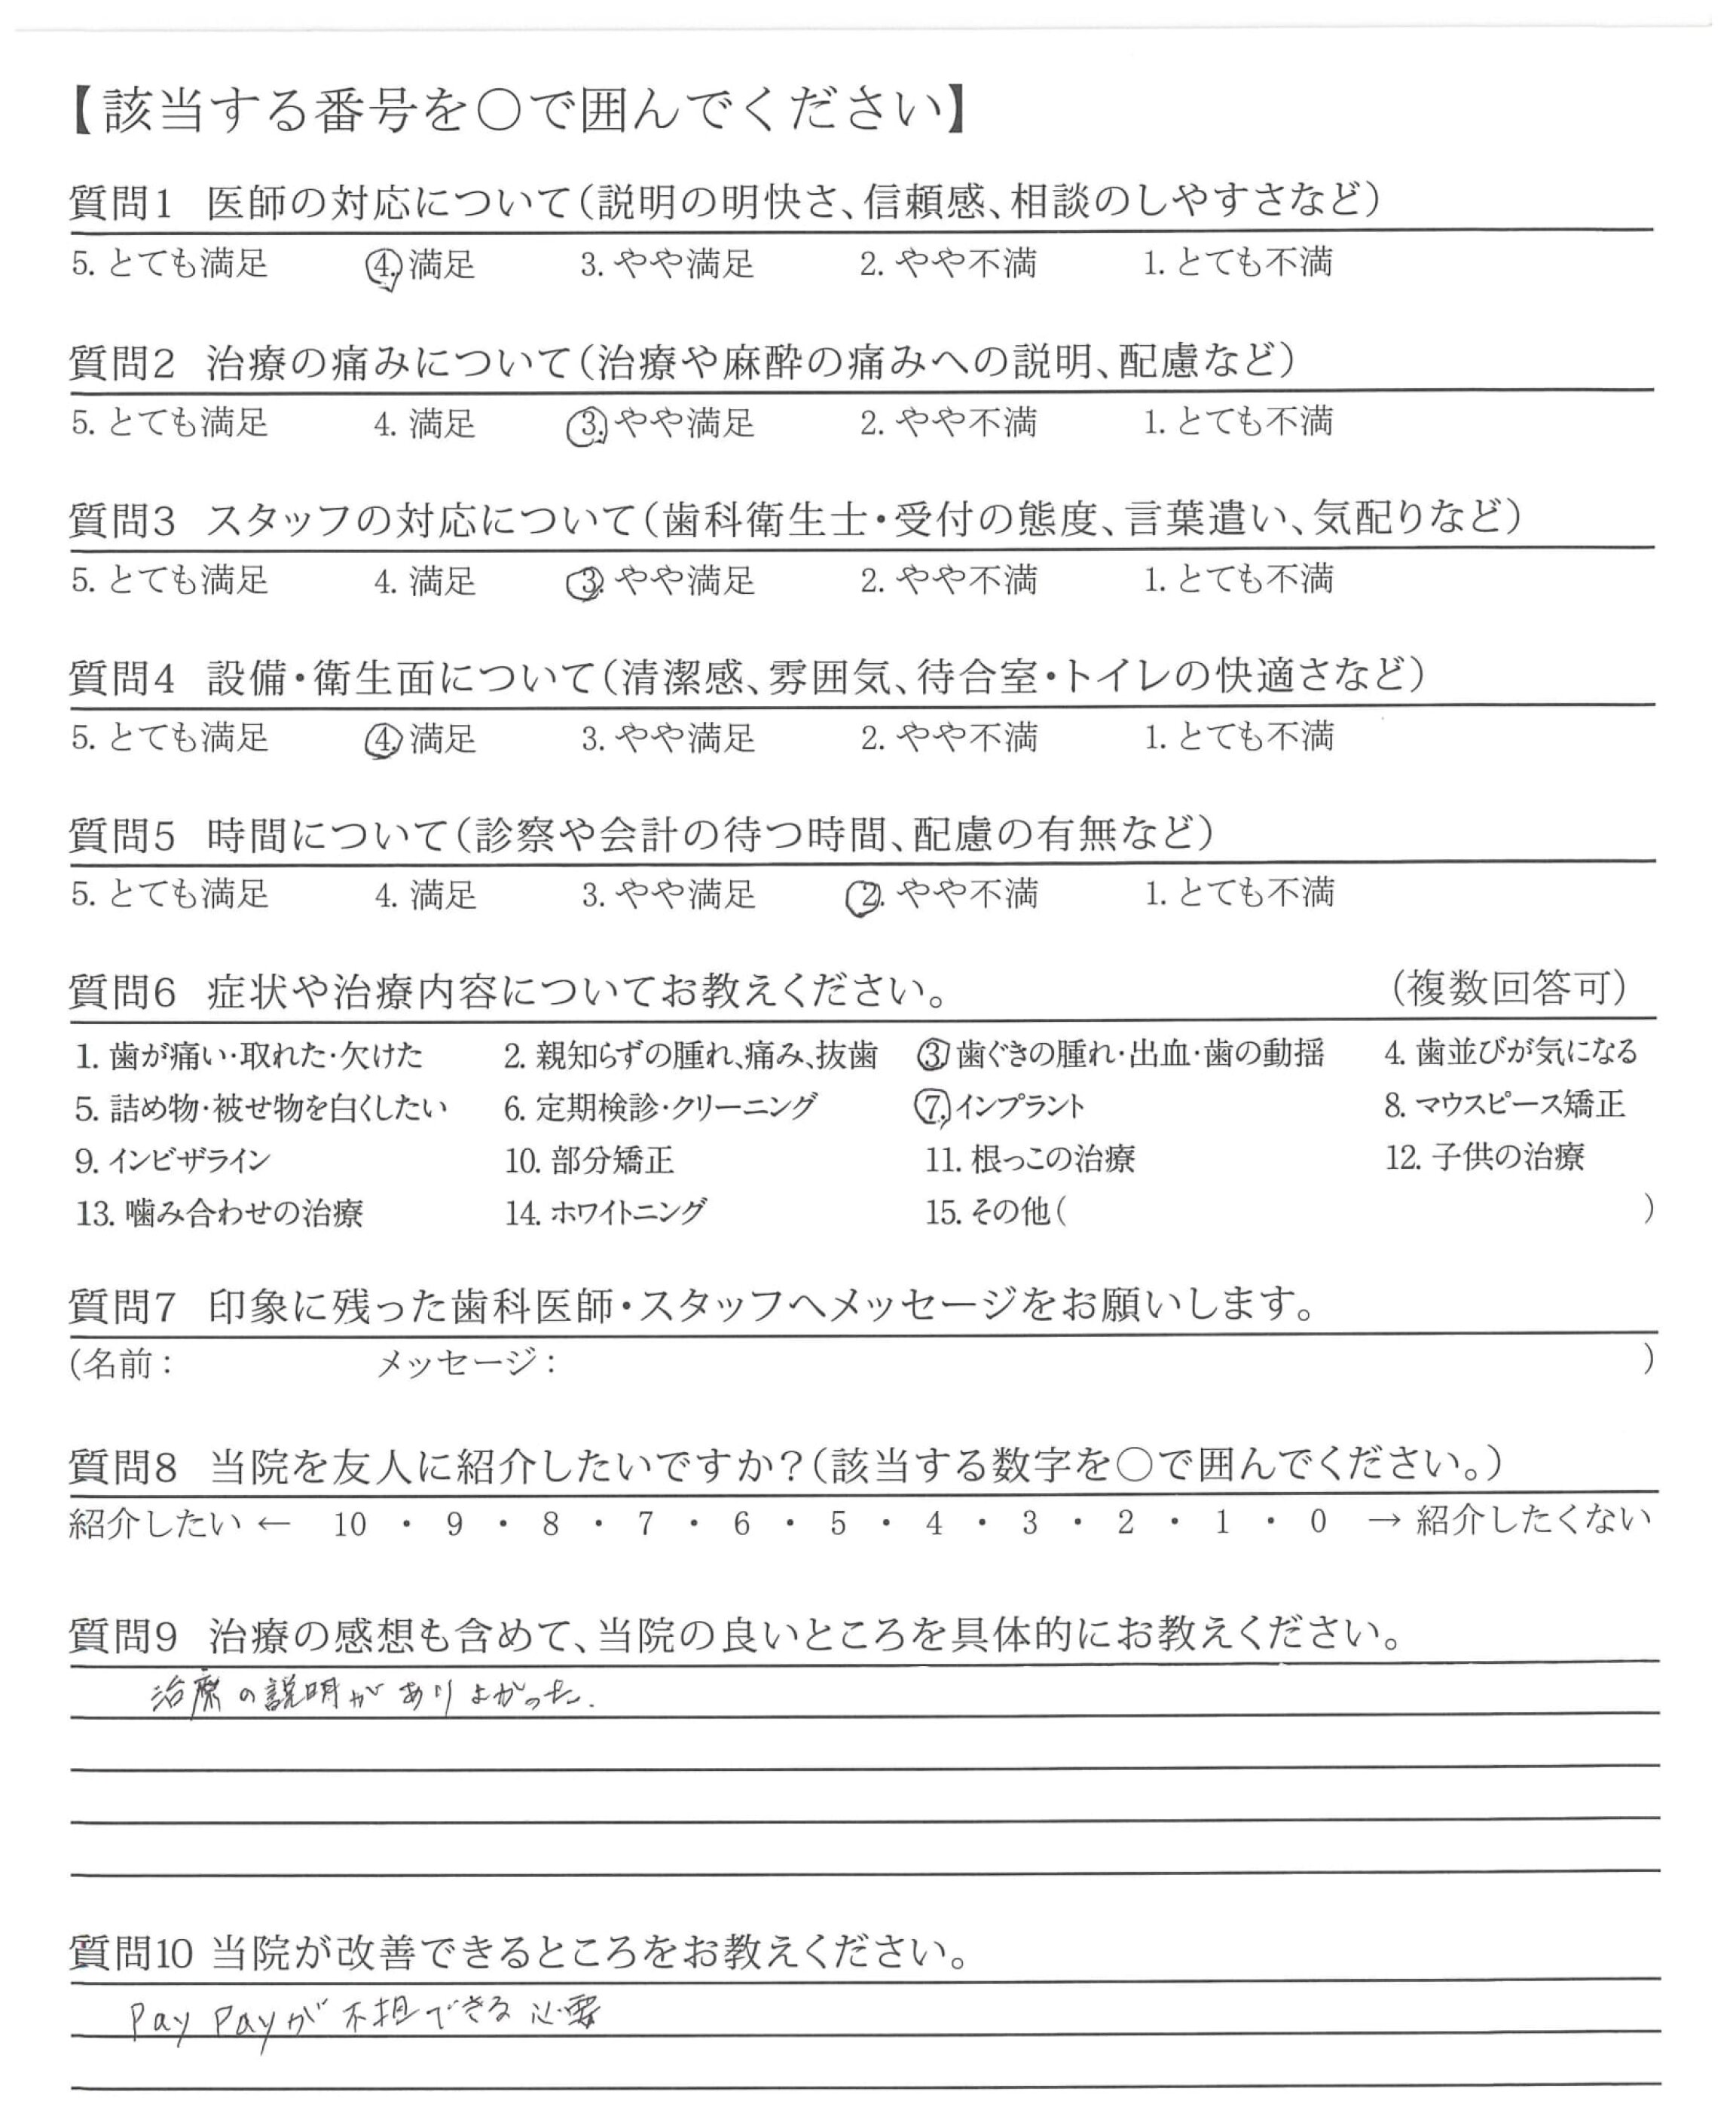 【該当する番号を〇で囲んでください】
質問1 医師の対応について(説明の明快さ、信頼感、相談のしやすさなど)
5. とても満足 4. 満足 3. やや満足 2. やや不満 1. とても不満
質問2 治療の痛みについて(治療や麻酔の痛みへの説明、配慮など)
5. とても満足 4. 満足 3. やや満足 2. やや不満 1. とても不満
質問3 スタッフの対応について(歯科衛生士・受付の態度、言葉遣い、気配りなど)
5. とても満足 4. 満足 3. やや満足 2. やや不満 1. とても不満
質問4 設備・衛生面について(清潔感、雰囲気、待合室・トイレの快適さなど)
5. とても満足 4. 満足 3. やや満足 2. やや不満 1. とても不満
質問5 時間について(診察や会計の待つ時間、配慮の有無など)
5. とても満足 4. 満足 3. やや満足 2. やや不満 1. とても不満
質問6 症状や治療内容についてお教えください。 (複数回答可)
1. 歯が痛い・取れた・欠けた 2. 親知らずの腫れ、痛み、抜歯 3. 歯ぐきの腫れ・出血・歯の動揺 4. 歯並びが気になる
5. 詰め物・被せ物を白くしたい 6. 定期検診・クリーニング 7. インプラント 8. マウスピース矯正
9. インビザライン 10. 部分矯正 11. 根っこの治療 12. 子供の治療
13. 噛み合わせの治療 14. ホワイトニング 15. その他( )
質問7 印象に残った歯科医師・スタッフへメッセージをお願いします。
(名前: メッセージ: )
質問8 当院を友人に紹介したいですか?(該当する数字を〇で囲んでください。)
紹介したい ← 10 ・ 9 ・ 8 ・ 7 ・ 6 ・ 5 ・ 4 ・ 3 ・ 2 ・ 1 ・ 0 → 紹介したくない
質問9 治療の感想も含めて、当院の良いところを具体的にお教えください。
治療の説明がありよかった.
質問10 当院が改善できるところをお教えください。
Pay Payが できる 必要